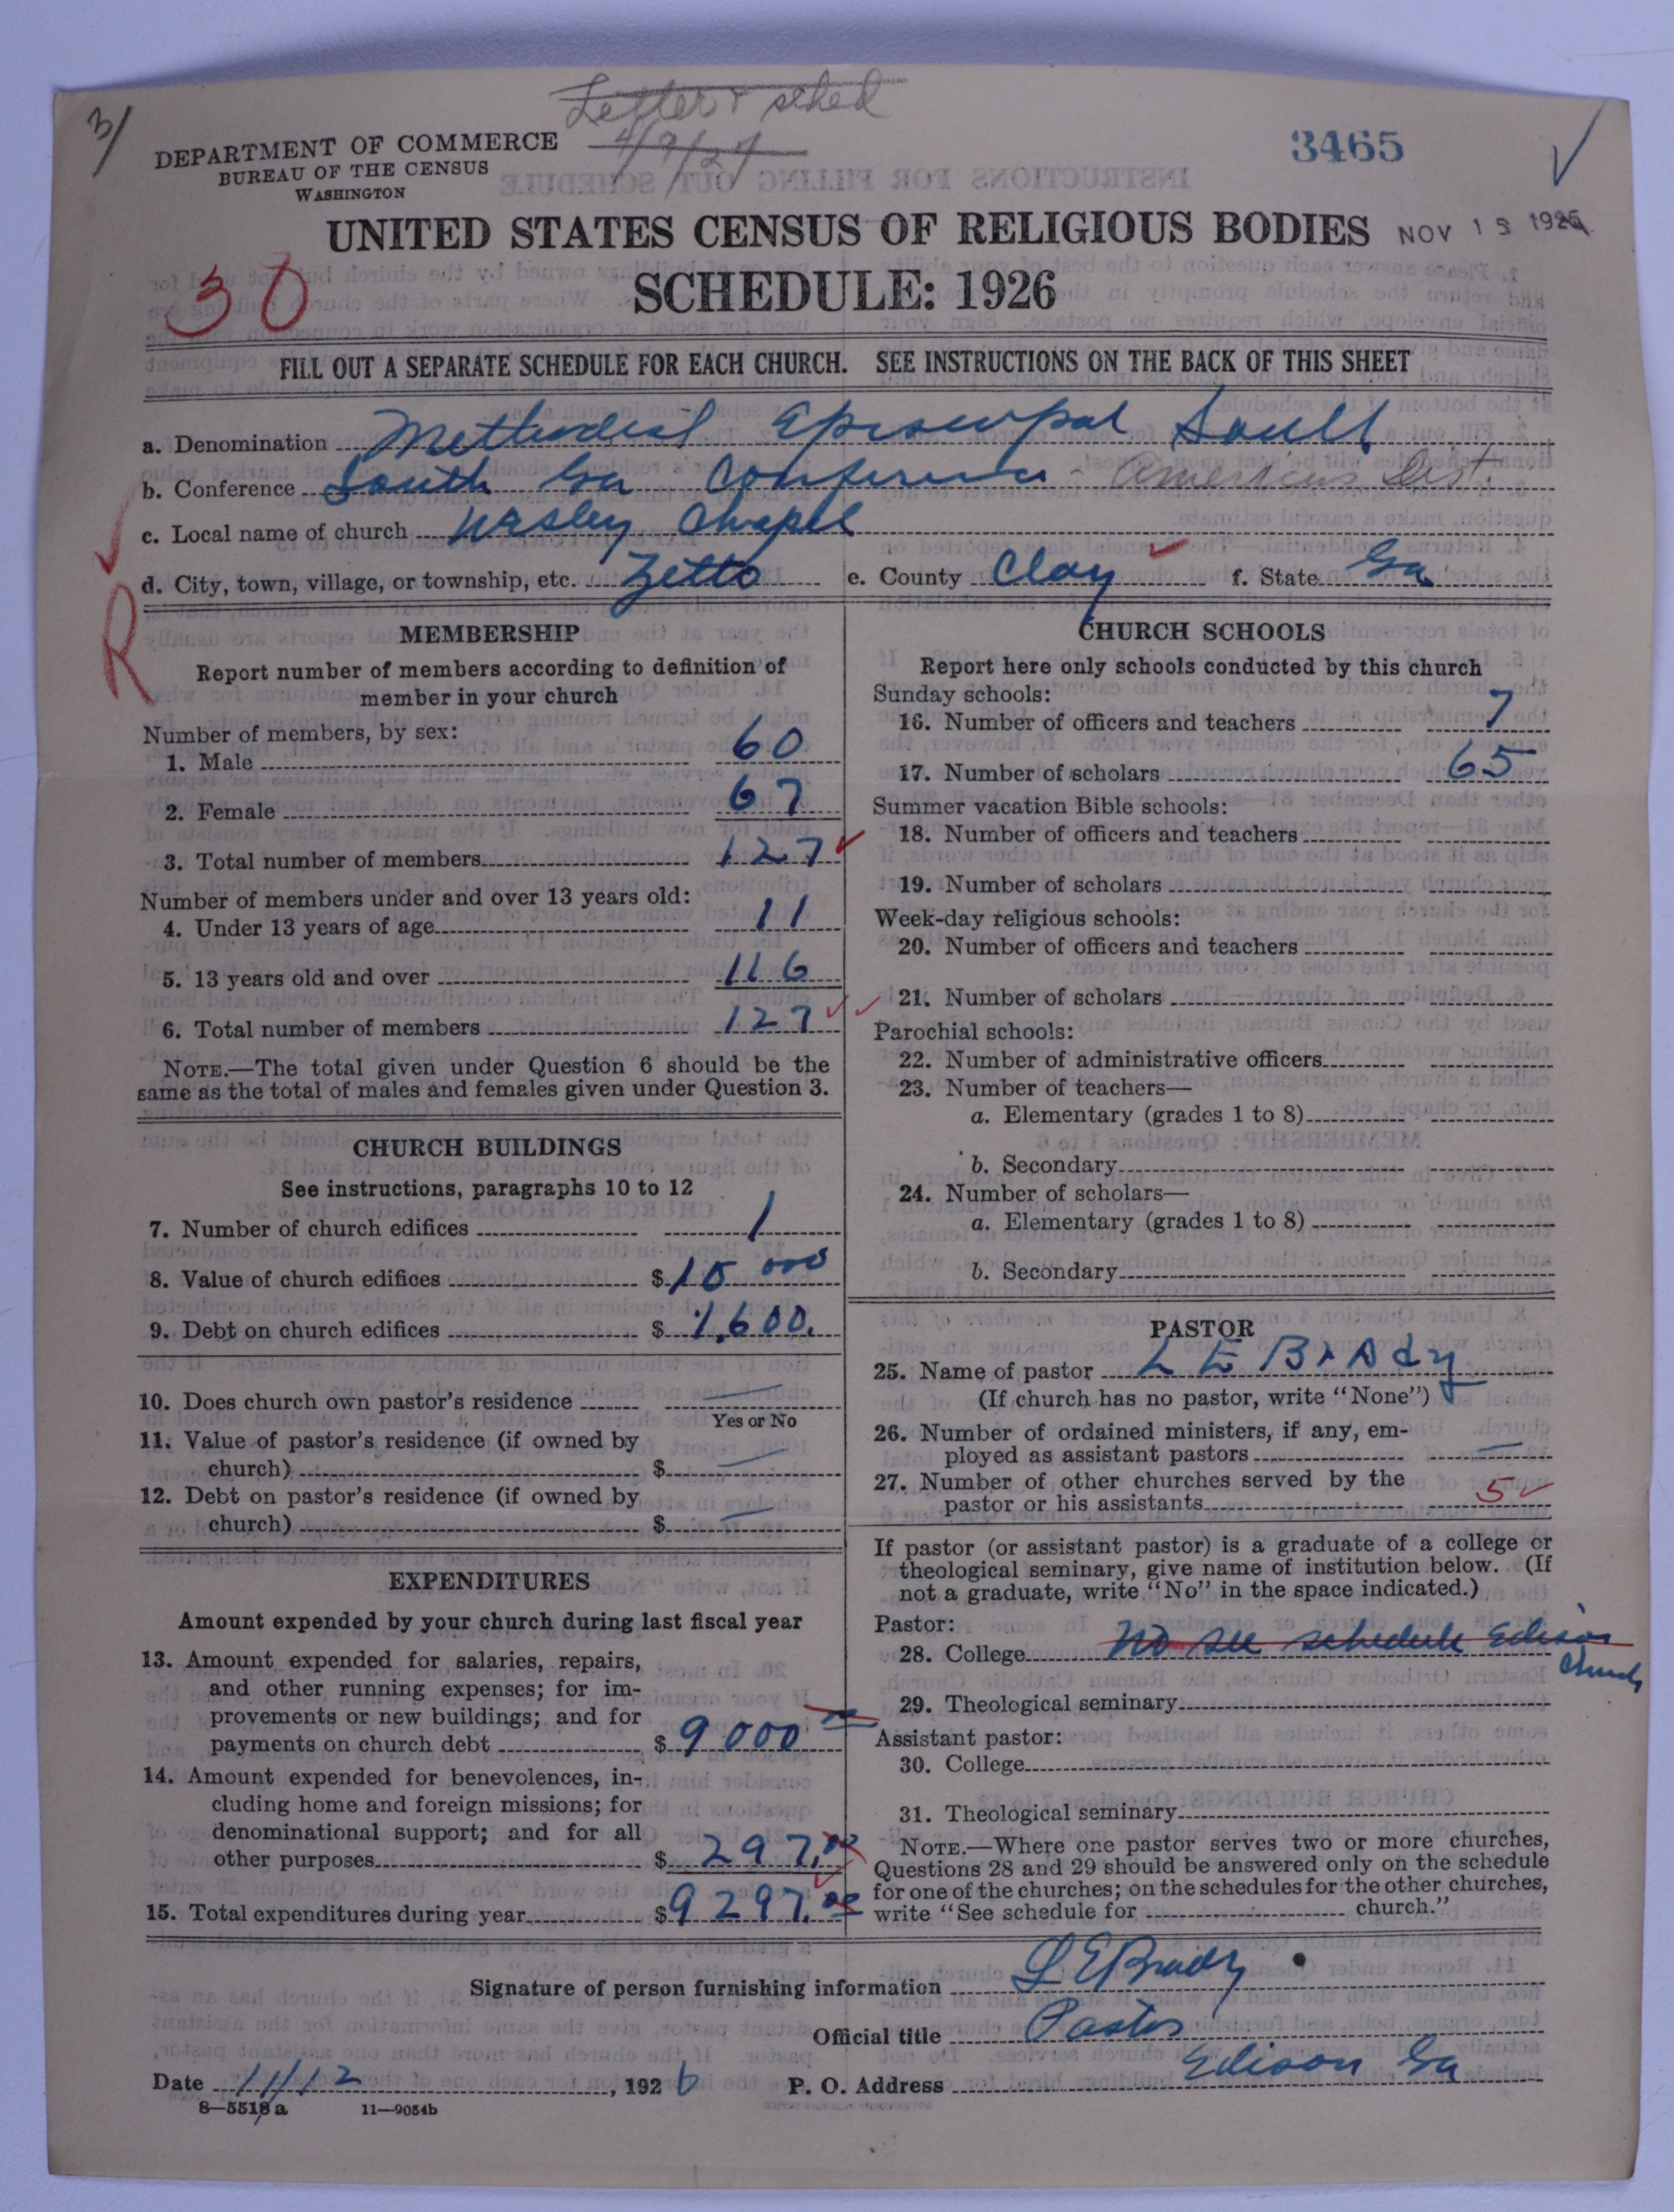 3/
Letter & sched
4/9/27
3465
DEPARTMENT OF COMMERCE
BUREAU OF THE CENSUS
WASHINGTON
UNITED STATES CENSUS OF RELIGIOUS BODIES
NOV 13 1926
SCHEDULE: 1926
30
FILL OUT A SEPARATE SCHEDULE FOR EACH CHURCH. SEE INSTRUCTIONS ON THE BACK OF THIS SHEET
a. Denomination Methodist Episcopal South
b. Conference South Ga Conference - Americus Dist.
c. Local name of church Wesley Chapel
d. City, town, village, or township, etc. Zetto e. County Clay f. State Ga
R
MEMBERSHIP
Report number of members according to definition of
member in your church
Number of members, by sex:
1. Male 60
2. Female 67
3. Total number of members 127
Number of members under and over 13 years old:
4. Under 13 years of age 11
5. 13 years old and over 116
6. Total number of members 127
NOTE.—The total given under Question 6 should be the
same as the total of males and females given under Question 3.
CHURCH BUILDINGS
See instructions, paragraphs 10 to 12
7. Number of church edifices 1
8. Value of church edifices $10 000
9. Debt on church edifices $1,600.
10. Does church own pastor's residence —
Yes or No
11. Value of pastor's residence (if owned by
church) $ —
12. Debt on pastor's residence (if owned by
church) $ —
EXPENDITURES
Amount expended by your church during last fiscal year
13. Amount expended for salaries, repairs,
and other running expenses; for im-
provements or new buildings; and for
payments on church debt $9000
14. Amount expended for benevolences, in-
cluding home and foreign missions; for
denominational support; and for all
other purposes $297.00
15. Total expenditures during year $9297.00
CHURCH SCHOOLS
Report here only schools conducted by this church
Sunday schools:
16. Number of officers and teachers 7
17. Number of scholars 65
Summer vacation Bible schools:
18. Number of officers and teachers
19. Number of scholars
Week-day religious schools:
20. Number of officers and teachers
21. Number of scholars
Parochial schools:
22. Number of administrative officers
23. Number of teachers—
a. Elementary (grades 1 to 8)
b. Secondary
24. Number of scholars—
a. Elementary (grades 1 to 8)
b. Secondary
PASTOR
25. Name of pastor L E Brady
(If church has no pastor, write "None")
26. Number of ordained ministers, if any, em-
ployed as assistant pastors —
27. Number of other churches served by the
pastor or his assistants 5
If pastor (or assistant pastor) is a graduate of a college or
theological seminary, give name of institution below. (If
not a graduate, write "No" in the space indicated.)
Pastor:
28. College No see schedule Edison
church
29. Theological seminary
Assistant pastor:
30. College
31. Theological seminary
NOTE.—Where one pastor serves two or more churches,
Questions 28 and 29 should be answered only on the schedule
for one of the churches; on the schedules for the other churches,
write "See schedule for church."
Signature of person furnishing information L E Brady
Official title Pastor
Date 11/12, 1926 P. O. Address Edison Ga
8—5518 a 11—9054b